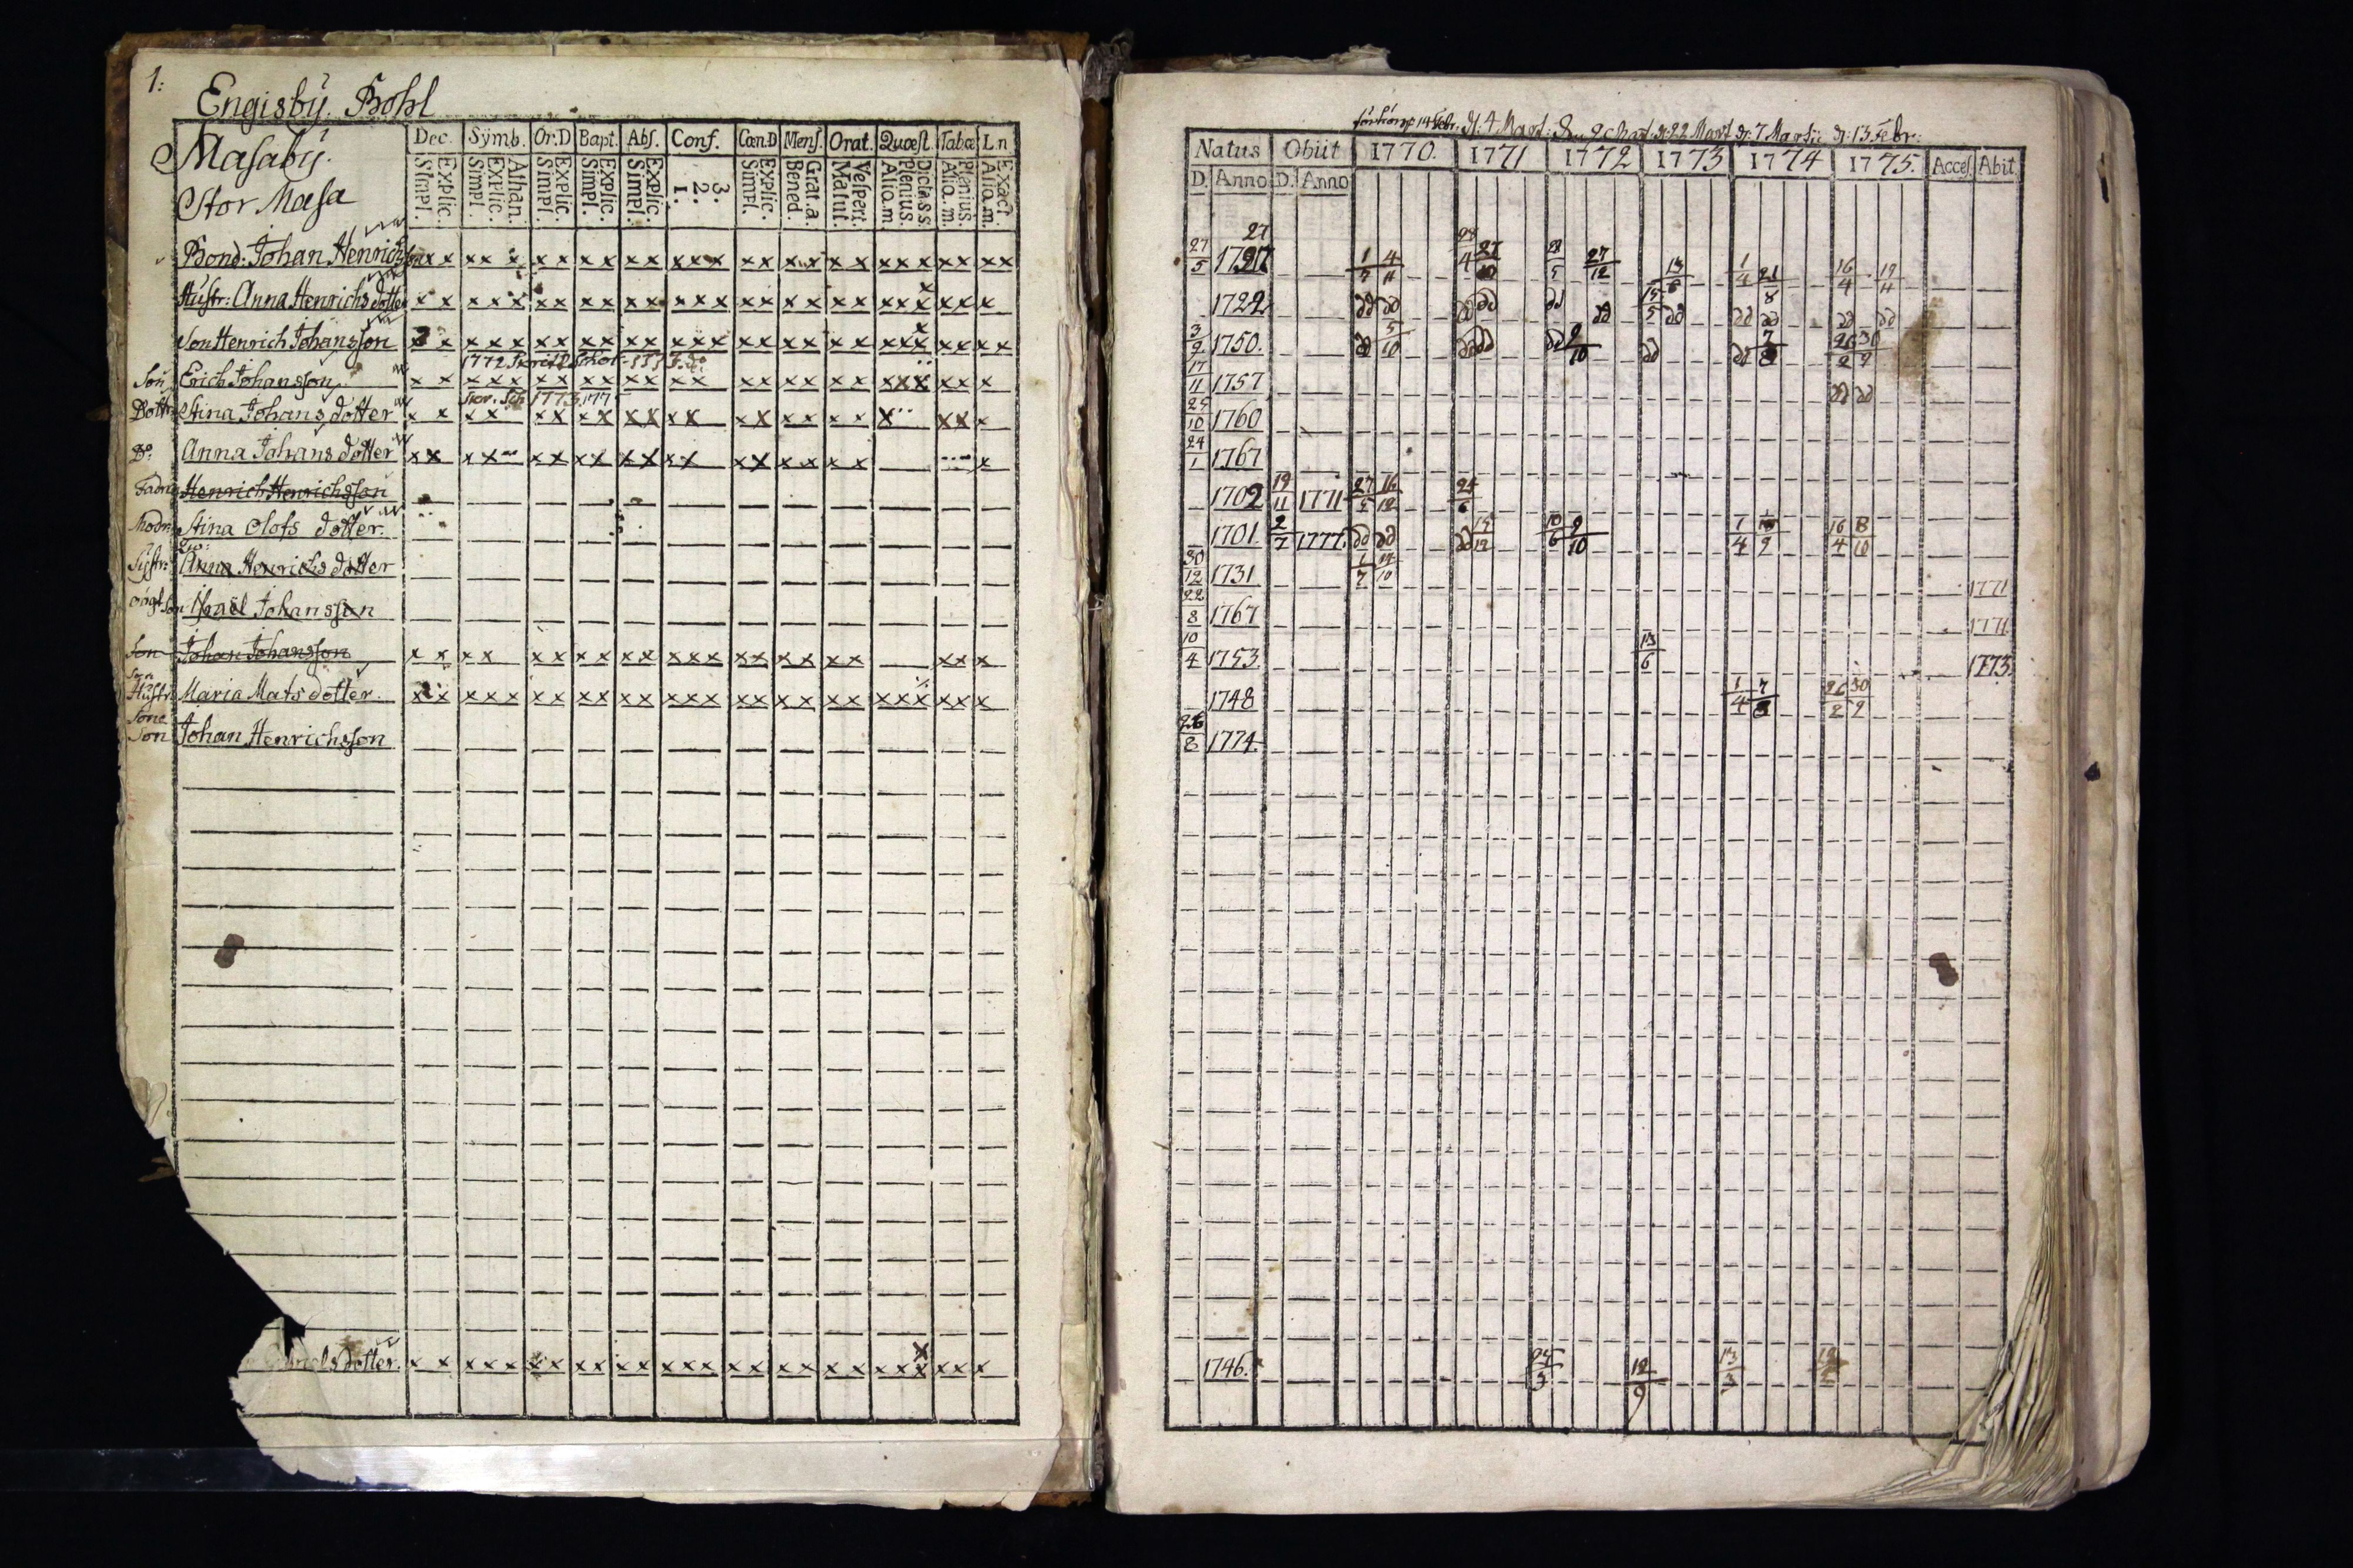 1:
Engisby. Bohl
Masaby.
Stor Masa
Dec. Symb. Or.D Bapt. Abs. Conf. Cœn.D Mens. Orat. Quæst. Tabæ L.n
Simpl. Explic. Simpl. Explic. Athan. Simpl. Explic. Simpl. Explic. Simpl. Explic. 1. 2. 3. Simpl. Explic. Bened. Grat.a. Matut. Vespert. Aliq.m. Plenius. Dict.s.s. Aliq.m. Plenius. Aliq.m. Exact.
Bond: Johan Henrichsson x x x x x x x x x x x x x x x x x x x x x x x x x x x
Hustr: Anna Henrichs dotter x x x x x x x x x x x x x x x x x x x x x x x x x x
Son Henrich Johansson x x x x x x x x x x x x x x x x x x x x x x x x x x
1772
Son Erich Johansson x x x x x x x x x x x x x x x x x x x x x x x x x
1773
Dottr Stina Johans dotter x x x x x x x x x x x x x x x x x x x x x x
Do: Anna Johans dotter x x x x x x x x x x x x x x x x x x x
Henrich Henrichsson
Modr Stina Olofs dotter.
Systr: Anna Henrichs dotter
Israël Johansson
Son Johan Johansson x x x x x x x x x x x x x x x x x x x x x x
Son Hustr: Maria Mats dotter. x x x x x x x x x x x x x x x x x x x x x x x x x x
Sons Son Johan Henrichsson
elsdotter. x x x x x x x x x x x x x x x x x x x x x x x x x x
14 Febr. d: 4 Mart: 22 Mart d: 7 Martii d: 13 Febr:
Natus Obiit 1770. 1771 1772 1773 1774 1775. Acces. Abit.
D. Anno D. Anno
27
27/5 1727 1/7 4/11 28/4 27/12 1/4 21/8 16/4 19/11
1722 dd dd dd dd dd dd 15/5 dd dd dd dd dd
3/2 1750. dd 5/10 dd dd dd 9/10 dd dd 7/8 26/2 30/9
17/11 1757 dd dd
25/10 1760
24/1 1767
1702 19/11 1771 27/5 16/12 24/6
1701 2/7 1777. dd dd dd 15/12 10/6 9/10 1/4 16/4 8/10
30/12 1731 1/7 14/10 1771
22/8 1767 1771
10/4 1753 13/6 1773.
1748 1/4 7/8 26/2 30/9
26/8 1774.
1746. 12/9 13/3